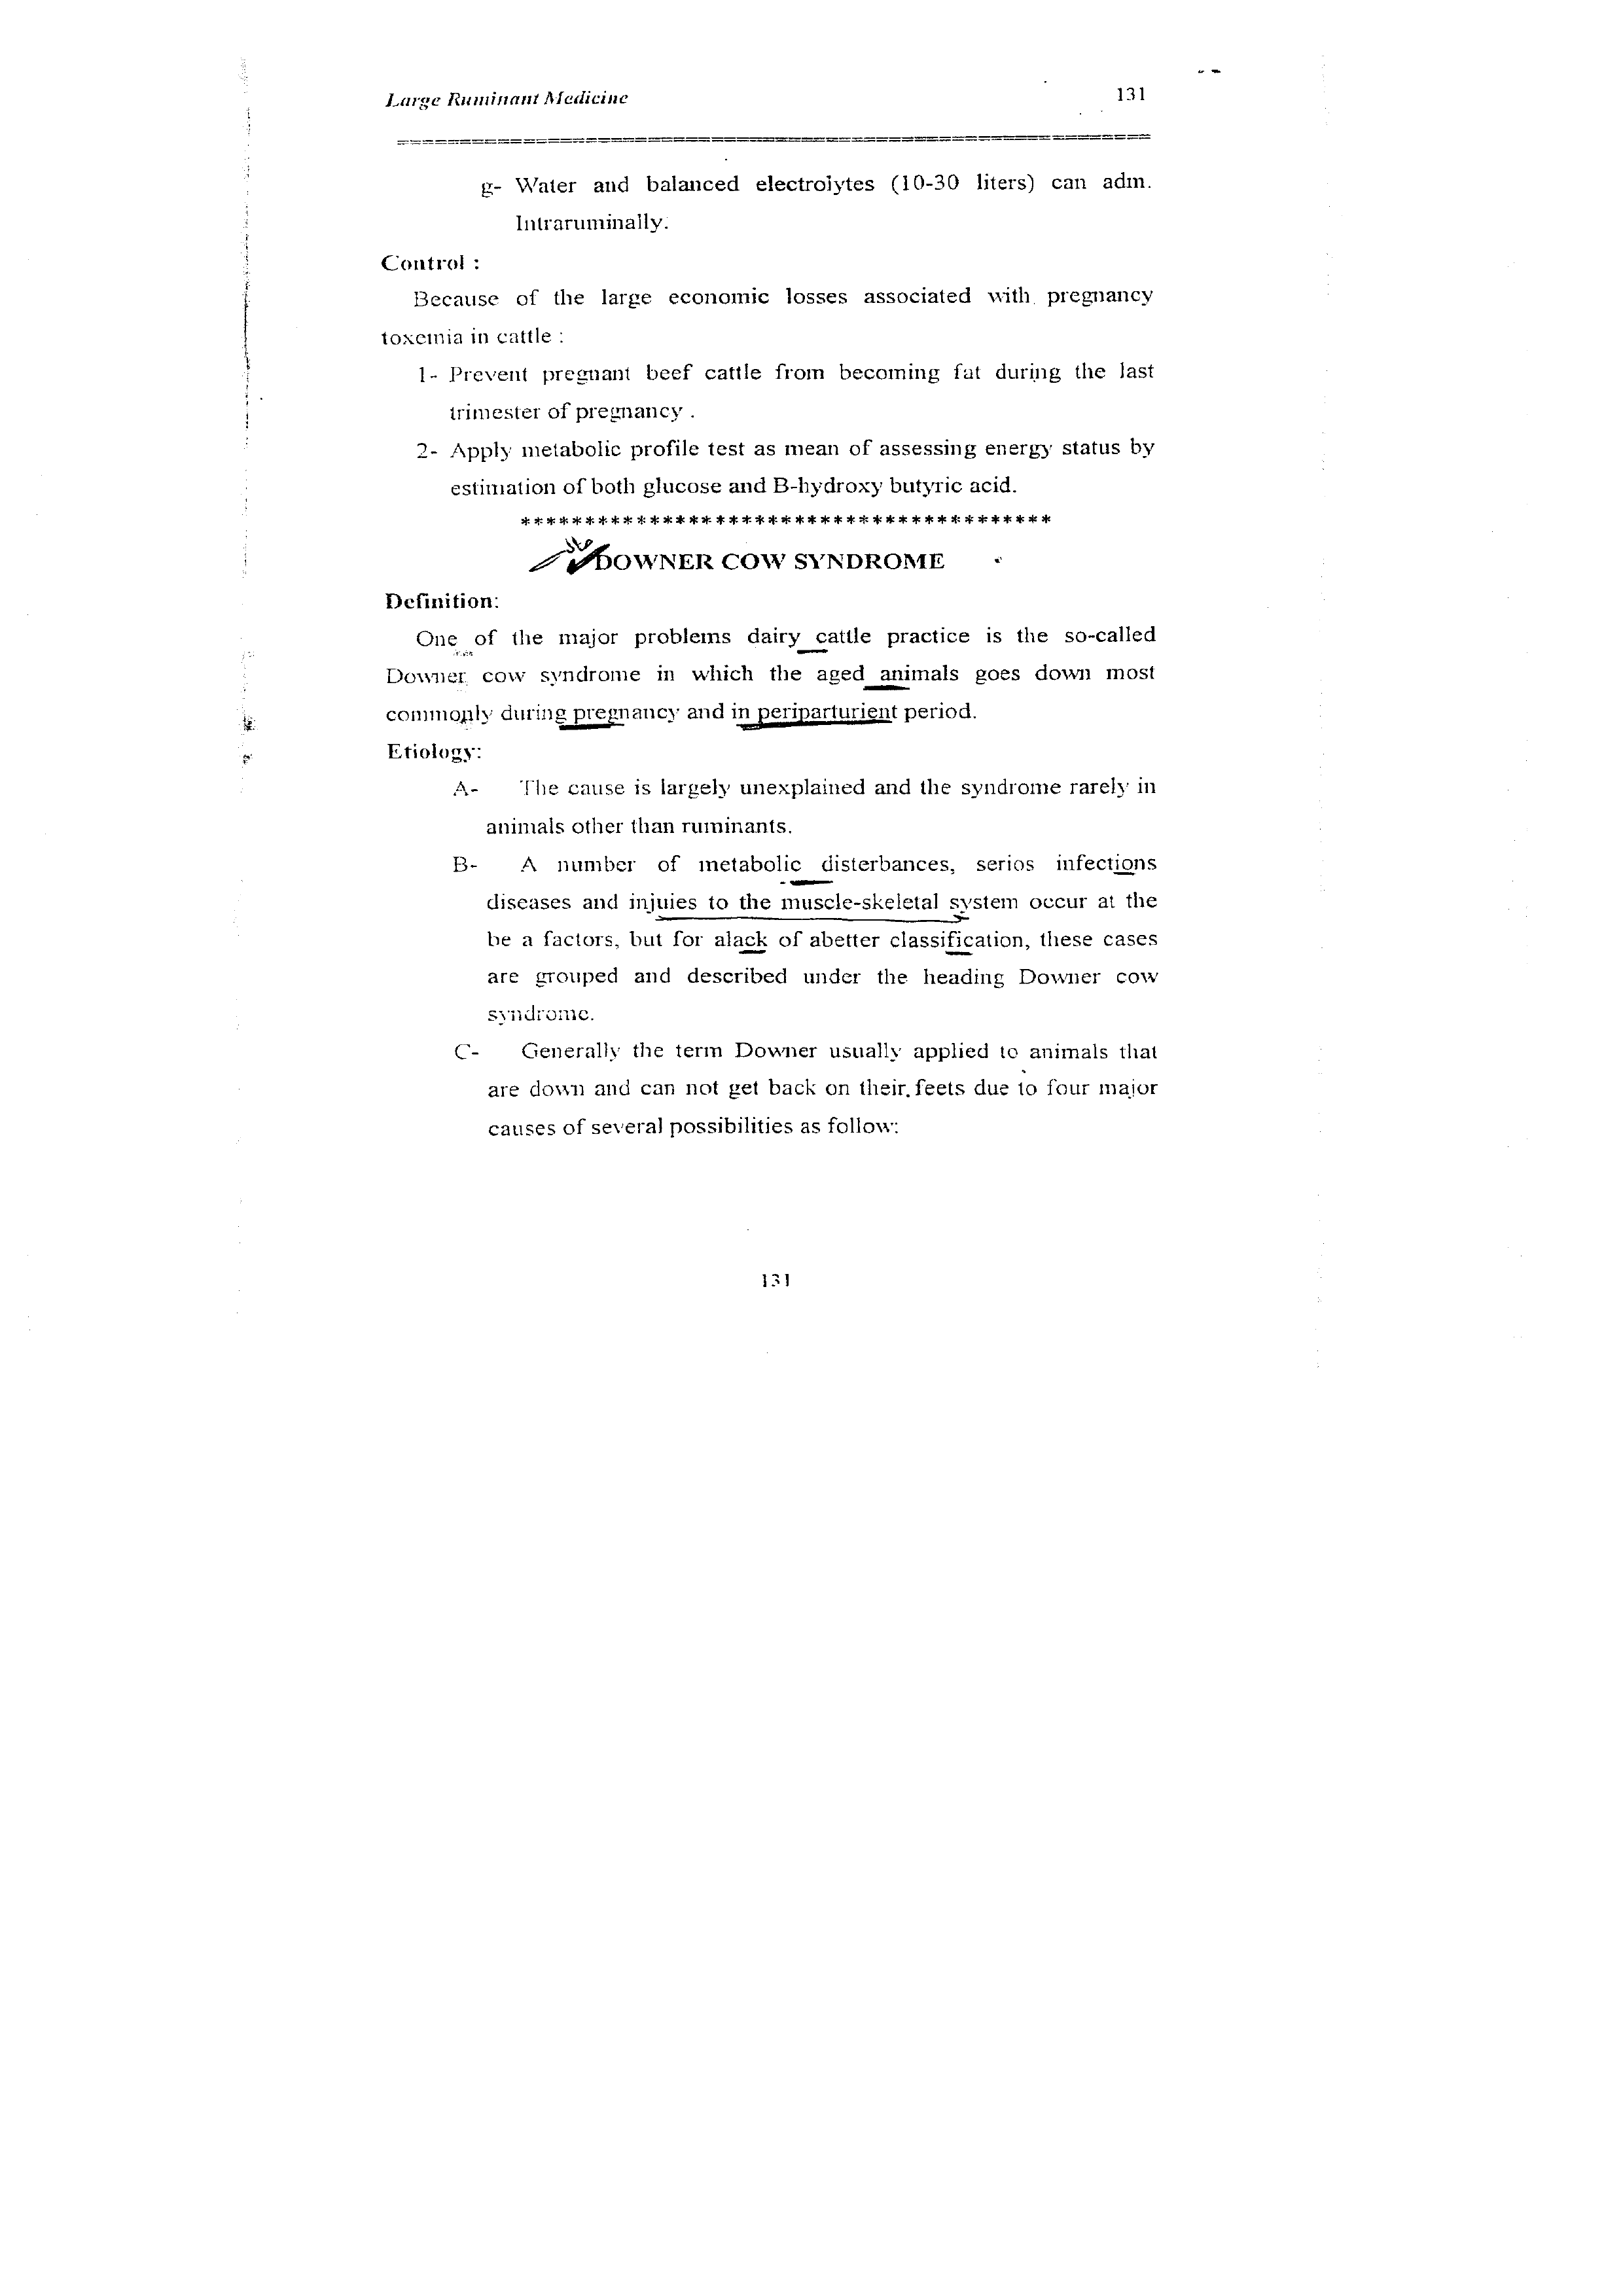 Large Ruminant Medicine 131
g- Water and balanced electrolytes (10-30 liters) can adm.
Intraruminally.
Control :
Because of the large economic losses associated with pregnancy
toxemia in cattle :
1- Prevent pregnant beef cattle from becoming fat during the last
trimester of pregnancy .
2- Apply metabolic profile test as mean of assessing energy status by
estimation of both glucose and B-hydroxy butyric acid.
*****************************************
DOWNER COW SYNDROME
Definition:
One of the major problems dairy cattle practice is the so-called
Downer cow syndrome in which the aged animals goes down most
commonly during pregnancy and in periparturient period.
Etiology:
A- The cause is largely unexplained and the syndrome rarely in
animals other than ruminants.
B- A number of metabolic disterbances, serios infections
diseases and injuies to the muscle-skeletal system occur at the
be a factors, but for alack of abetter classification, these cases
are grouped and described under the heading Downer cow
syndrome.
C- Generally the term Downer usually applied to animals that
are down and can not get back on their feets due to four major
causes of several possibilities as follow:
131